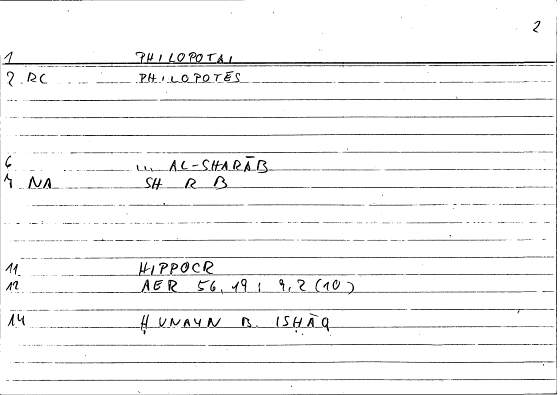 2
1 PHILOPOTAI
2 RC PHILOPOTĒS
6 ... AL-SHARĀB
7 NA SH R B
11 HIPPOCR
12 AER 56,19 ; 9,2 (10)
14 ḤUNAYN B. ISḤĀQ